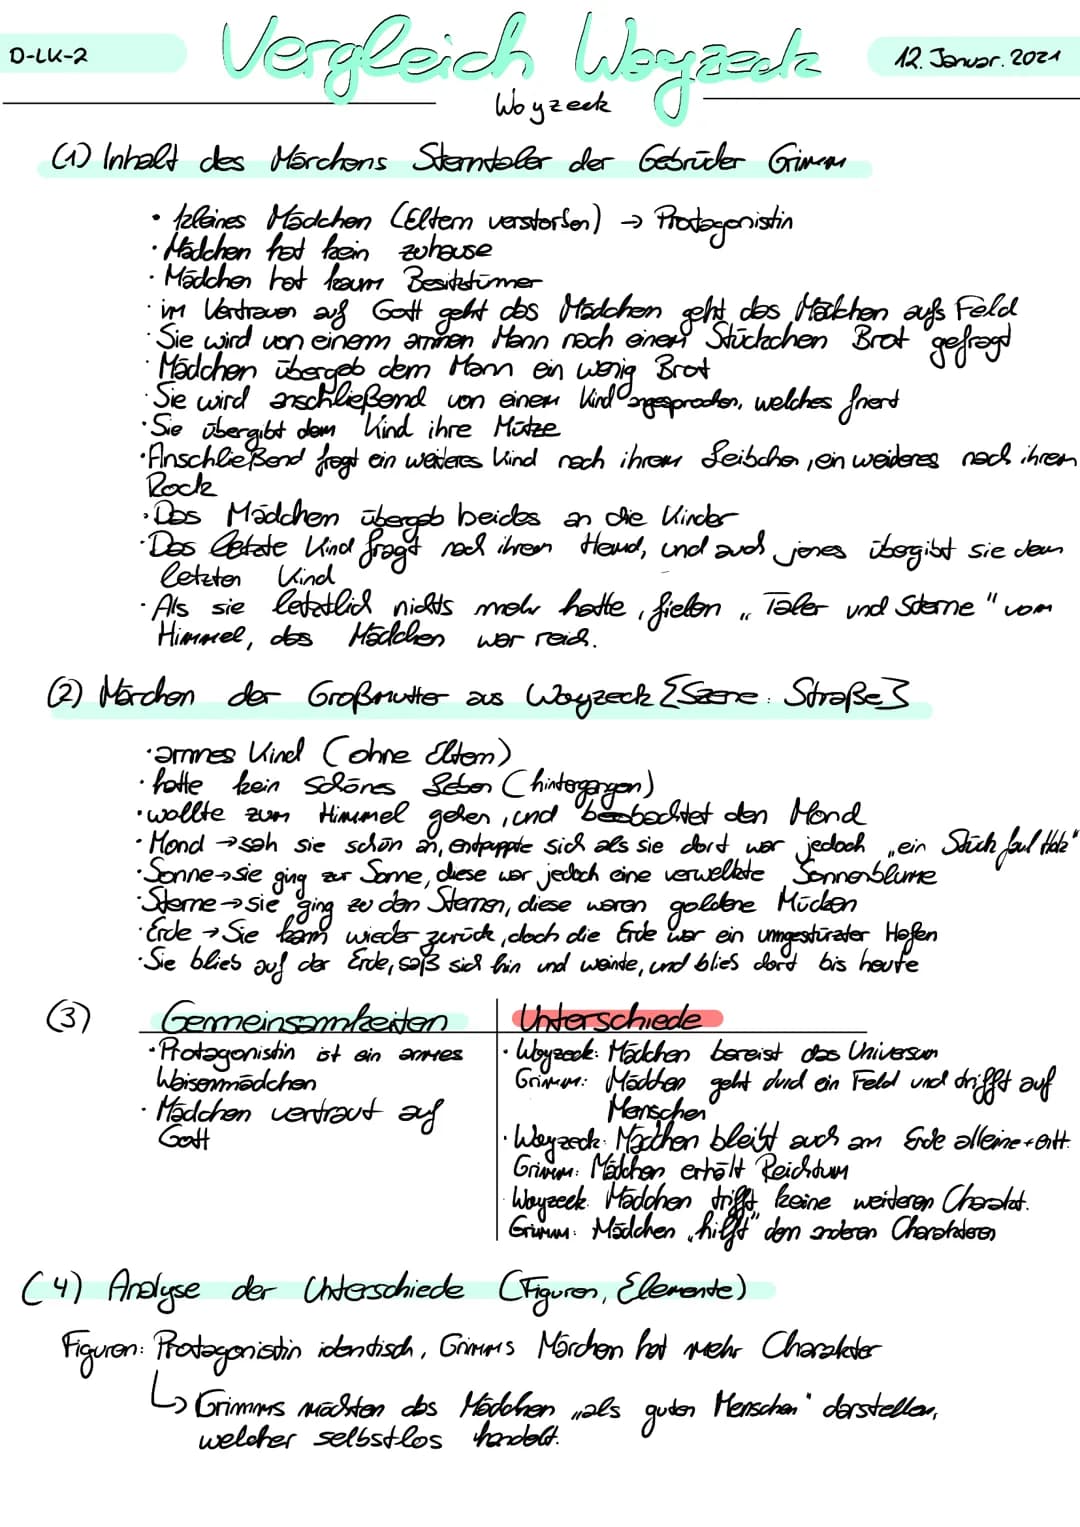 D-LK-2
Vergleich Woyzeck
12. Januar. 2021
Woyzeck
(1) Inhalt des Märchens Sterntaler der Gebrüder Grimm
· kleines Mädchen (Eltern verstorben) → Protagonistin
· Mädchen hat kein zuhause
· Mädchen hat kaum Besitztümer
· im Vertrauen auf Gott geht das Mädchen geht das Mädchen aufs Feld
· Sie wird von einem armen Mann nach einem Stückchen Brot gefragt
· Mädchen übergab dem Mann ein wenig Brot
· Sie wird anschließend von einem Kind angesprochen, welches friert
· Sie übergibt dem Kind ihre Mütze
· Anschließend fragt ein weiteres Kind nach ihrem Leibchen, ein weiteres nach ihrem
Rock
· Das Mädchen übergab beides an die Kinder
· Das letzte Kind fragt nach ihrem Hemd, und auch jenes übergibt sie dem
letzten Kind
· Als sie letztlich nichts mehr hatte, fielen „Taler und Sterne" vom
Himmel, das Mädchen war reich.
(2) Märchen der Großmutter aus Woyzeck {Szene: Straße}
· armes Kind (ohne Eltern)
· hatte kein schönes Leben (hintergangen)
· wollte zum Himmel gehen, und beobachtet den Mond
· Mond → sah sie schön an, entpuppte sich als sie dort war jedoch „ein Stück faul Holz"
· Sonne → sie ging zur Sonne, diese war jedoch eine verwelkte Sonnenblume
· Sterne → sie ging zu den Sternen, diese waren goldene Mücken
· Erde → Sie kam wieder zurück, doch die Erde war ein umgestürzter Hafen
· Sie blieb auf der Erde, saß sich hin und weinte, und blieb dort bis heute
(3) Gemeinsamkeiten
· Protagonistin ist ein armes
Waisenmädchen
· Mädchen vertraut auf
Gott
Unterschiede
· Woyzeck: Mädchen bereist das Universum
Grimm: Mädchen geht durch ein Feld und trifft auf
Menschen
· Woyzeck: Mädchen bleibt auch am Ende alleine + entt.
Grimm: Mädchen erhält Reichtum
· Woyzeck: Mädchen trifft keine weiteren Charakt.
Grimm: Mädchen „hilft" den anderen Charakteren
(4) Analyse der Unterschiede (Figuren, Elemente)
Figuren: Protagonistin identisch, Grimms Märchen hat mehr Charakter
↳ Grimms möchten das Mädchen „als guten Menschen" darstellen,
welcher selbstlos handelt.